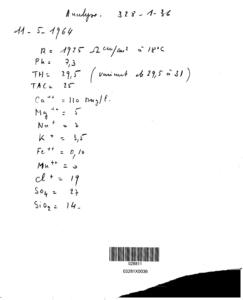 Analyse. 328-1-36
11-5-1964
R = 1925 Ω cm/cm² à 18°C
Ph = 7,3
TH = 29,5 (variant de 29,5 à 31)
TAC = 25
Ca⁺⁺ = 110 mg/l.
Mg⁺⁺ = 5
Na⁺ =
K⁺ = 3,5
Fe⁺⁺ = 0,10
Mn⁺⁺ = 0
Cl⁺ = 19
SO₄ = 27
SiO₂ = 14
028811
03281X0036